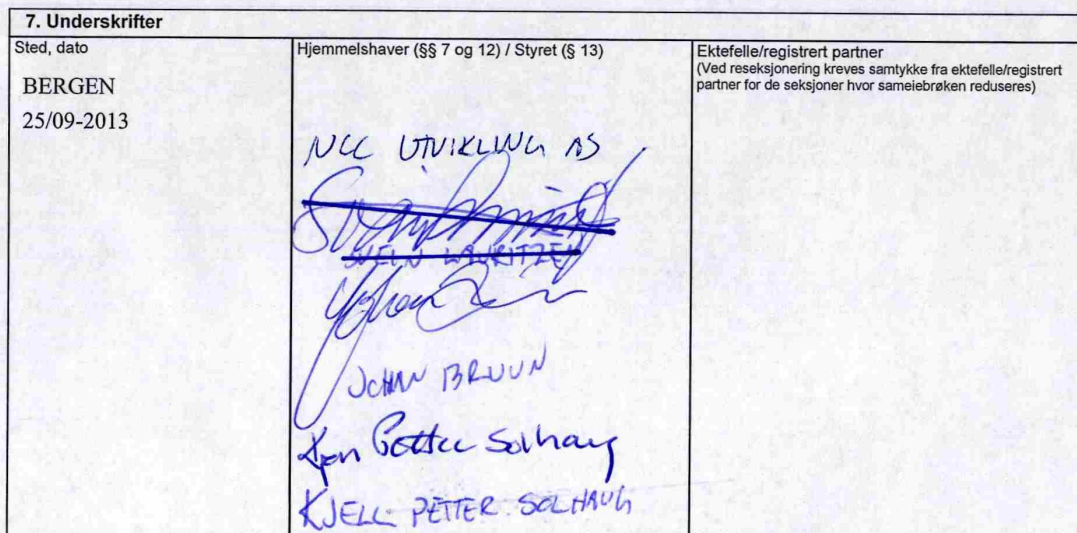 7. Underskrifter
Sted, dato
BERGEN
25/09-2013
Hjemmelshaver (§§ 7 og 12) / Styret (§ 13)
NCC UTVIKLING AS
SVEIN LAURITZEN
JOHAN BRUUN
Petter Solhaug
KJELL PETTER SOLHAUG
Ektefelle/registrert partner
(Ved reseksjonering kreves samtykke fra ektefelle/registrert
partner for de seksjoner hvor sameiebrøken reduseres)